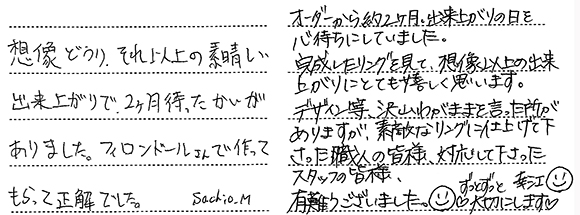 想像どうり、それ以上の素晴しい
出来上がりで、2ヶ月待ったかいが
ありました。フィロンドールさんで作って
もらって正解でした。 Sachio.M
オーダーから約2ヶ月、出来上がりの日を
心待ちにしていました。
完成したリングを見て、想像以上の出来
上がりにとても嬉しく思います。
デザイン等、沢山わがままを言った所が
ありますが、素敵なリングに仕上げて下
さった職人の皆様、対応して下さった
スタッフの皆様、
有難うございました。
ずっとずっと
大切にします♡
幸江